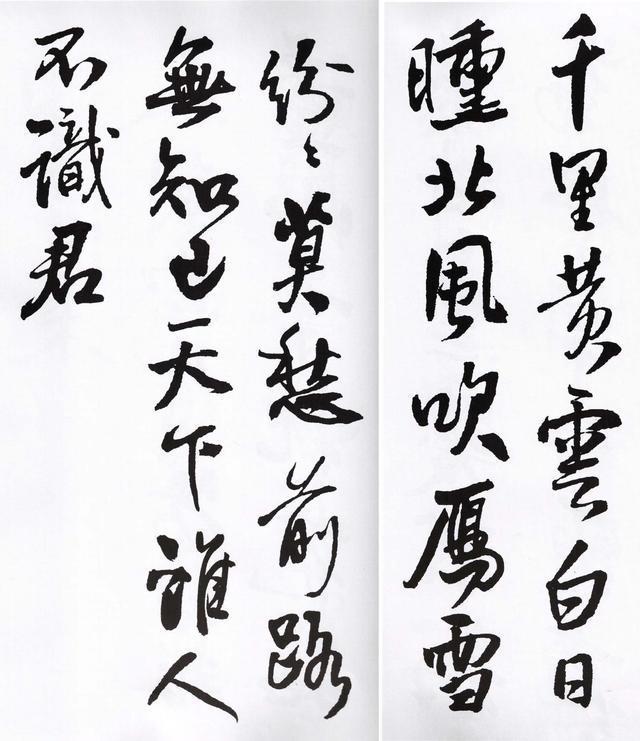 千里黄雲白日
曛北風吹鴈雪
紛々莫愁前路
無知己天下誰人
不識君